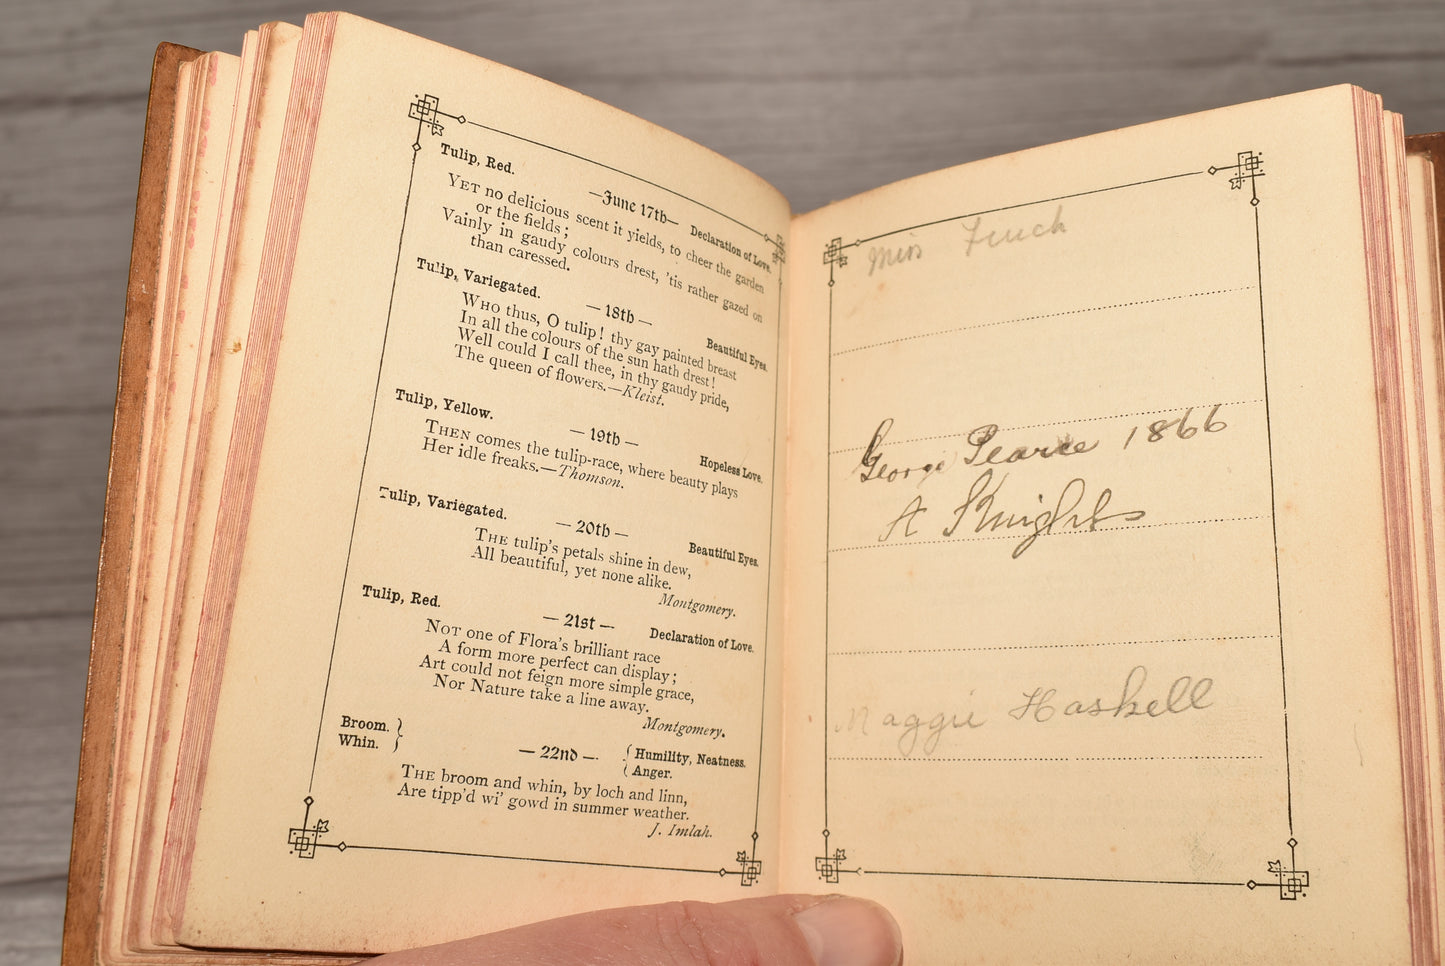 Tulip, Red.
—June 17th—
Declaration of Love.
YET no delicious scent it yields, to cheer the garden
or the fields;
Vainly in gaudy colours drest, 'tis rather gazed on
than caressed.
Tulip, Variegated.
—18th—
Beautiful Eyes.
WHO thus, O tulip! thy gay painted breast
In all the colours of the sun hath drest!
Well could I call thee, in thy gaudy pride,
The queen of flowers.—Kleist.
Tulip, Yellow.
—19th—
Hopeless Love.
THEN comes the tulip-race, where beauty plays
Her idle freaks.—Thomson.
Tulip, Variegated.
—20th—
Beautiful Eyes.
THE tulip's petals shine in dew,
All beautiful, yet none alike.
Montgomery.
Tulip, Red.
—21st—
Declaration of Love.
NOT one of Flora's brilliant race
A form more perfect can display;
Art could not feign more simple grace,
Nor Nature take a line away.
Montgomery.
Broom. }
Whin.
—22nd—
{ Humility, Neatness.
Anger.
THE broom and whin, by loch and linn,
Are tipp'd wi' gowd in summer weather.
J. Imlah.
Miss Finch
George Pearce 1866
A Knights
Maggie Haskell